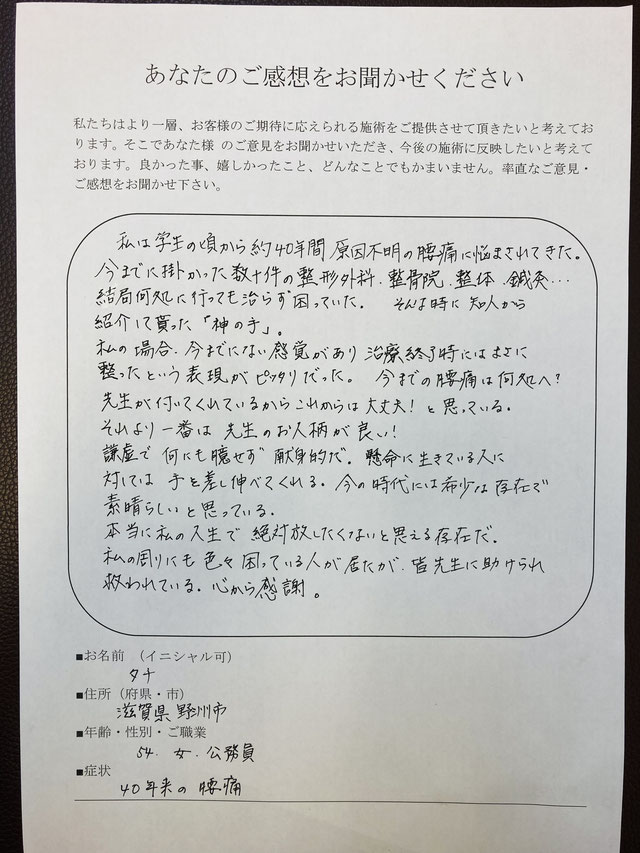 あなたのご感想をお聞かせください
私たちはより一層、お客様のご期待に応えられる施術をご提供させて頂きたいと考えてお
ります。そこであなた様 のご意見をお聞かせいただき、今後の施術に反映したいと考えて
おります。良かった事、嬉しかったこと、どんなことでもかまいません。率直なご意見・
ご感想をお聞かせ下さい。
私は学生の頃から約40年間 原因不明の腰痛に悩まされてきた。
今までに掛かった数十件の整形外科、整骨院、整体、鍼灸…
結局何処に行っても治らず困っていた。 そんな時に知人から
紹介して貰った「神の手」。
私の場合、今までにない感覚があり 治療終了時にはまさに
整ったという表現がピッタリだった。 今までの腰痛は何処へ?
先生が付いてくれているからこれからは大丈夫!と思っている。
それより一番は 先生のお人柄が良い!
謙虚で 何にも臆せず 献身的だ。懸命に生きている人に
対しては 手を差し伸べてくれる。今の時代には希少な存在で
素晴らしいと思っている。
本当に私の人生で 絶対放したくないと思える存在だ。
私の周りにも色々困っている人が居たが、皆先生に助けられ
救われている。心から感謝。
■お名前 (イニシャル可)
タナ
■住所(府県・市)
滋賀県 野洲市
■年齢・性別・ご職業
54. 女. 公務員
■症状
40年来の腰痛